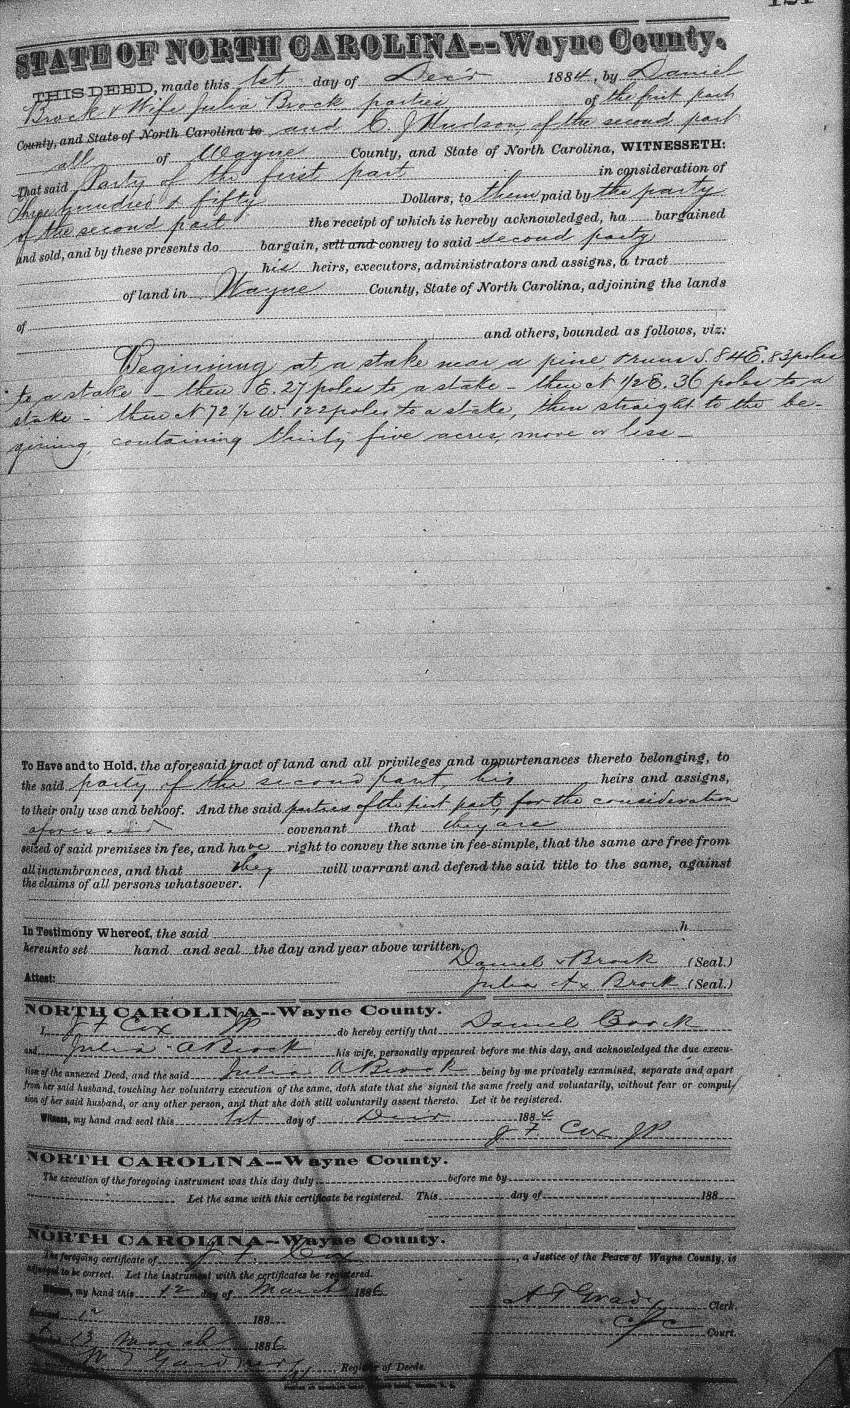 121
STATE OF NORTH CAROLINA--Wayne County.
THIS DEED, made this 1st day of Dec'r 1884, by Daniel
Brock & Wife Julia Brock parties of the first part
County, and State of North Carolina to and C. J Hudson, of the second part
all of Wayne County, and State of North Carolina, WITNESSETH:
That said Party of the first part in consideration of
Three hundred & fifty Dollars, to them paid by the party
of the second part the receipt of which is hereby acknowledged, ha bargained
and sold, and by these presents do bargain, sell and convey to said second party
his heirs, executors, administrators and assigns, a tract
of land in Wayne County, State of North Carolina, adjoining the lands
of
and others, bounded as follows, viz:
Beginning at a stake near a pine, & runs S. 84 E. 83 poles
to a stake - then E. 27 poles to a stake - then N 1/2 E. 36 poles to a
stake - then N 72 1/2 W 122 poles to a stake, then straight to the be-
gining, containing thirty five acres, more or less -
To Have and to Hold, the aforesaid tract of land and all privileges and appurtenances thereto belonging, to
the said party of the second part, his heirs and assigns,
to their only use and behoof. And the said parties of the first part, for the consideration
aforesaid covenant that they are
seized of said premises in fee, and have right to convey the same in fee-simple, that the same are free from
all incumbrances, and that they will warrant and defend the said title to the same, against
the claims of all persons whatsoever.
In Testimony Whereof, the said h
hereunto set hand and seal the day and year above written.
Daniel x Brock (Seal.)
Attest: Julia A x Brock (Seal.)
NORTH CAROLINA--Wayne County.
I, J F Cox JP do hereby certify that Daniel Brock
and Julia A Brock his wife, personally appeared before me this day, and acknowledged the due execu-
tion of the annexed Deed, and the said Julia A Brock being by me privately examined, separate and apart
from her said husband, touching her voluntary execution of the same, doth state that she signed the same freely and voluntarily, without fear or compul-
sion of her said husband, or any other person, and that she doth still voluntarily assent thereto. Let it be registered.
Witness, my hand and seal this 1st day of Decr 1884
J F Cox JP
NORTH CAROLINA--Wayne County.
The execution of the foregoing instrument was this day duly before me by
Let the same with this certificate be registered. This day of 188
NORTH CAROLINA--Wayne County.
The foregoing certificate of J F. Cox, a Justice of the Peace of Wayne County, is
adjudged to be correct. Let the instrument with the certificates be registered.
Witness, my hand this 12 day of March 1886
A T Grady Clerk
Received 12 188
CSC Court.
13 March 1886
Register of Deeds.